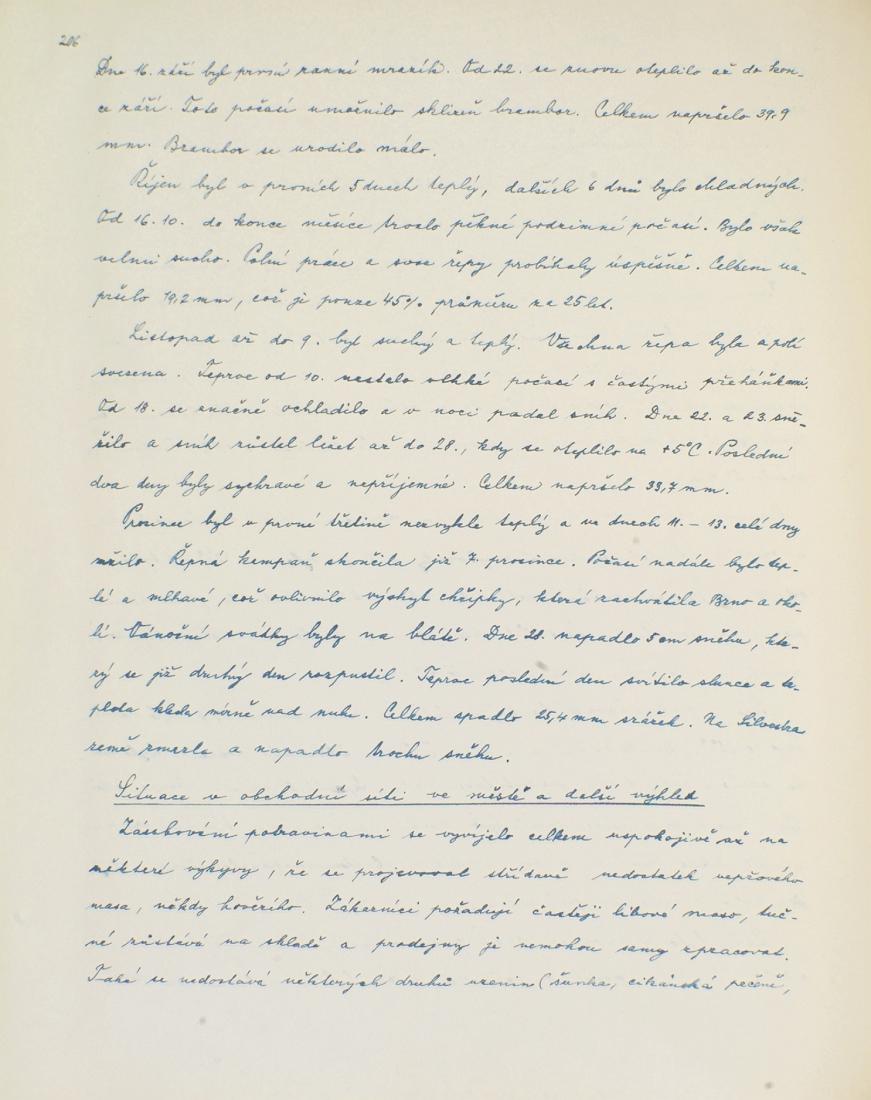 206
Dne 16. září byl první ranní mrazík. Od 22. se znovu oteplilo až do kon-
ce září. Toto počasí umožnilo sklizeň brambor. Celkem napršelo 39,9
mm. Brambor se urodilo málo.
Říjen byl v prvních 5 dnech teplý, dalších 6 dnů bylo chladných.
Od 16. 10. do konce měsíce trvalo pěkné podzimní počasí. Bylo však
velmi sucho. Polní práce a svoz řepy probíhaly úspěšně. Celkem na-
pršelo 19,2 mm, což je pouze 45% průměru za 25 let.
Listopad až do 9. byl suchý a teplý. Všechna řepa byla z polí
svezena. Teprve od 10. nastalo vlhké počasí s častými přeháňkami.
Od 18. se značně ochladilo a v noci padal sníh. Dne 22. a 23. sně-
žilo a sníh zůstal ležet až do 28., kdy se oteplilo na +5°C. Poslední
dva dny byly sychravé a nepříjemné. Celkem napršelo 33,7 mm.
Prosinec byl v první třetině nezvykle teplý a ve dnech 11. – 13. celé dny
mžilo. Řepná kampaň skončila již 7. prosince. Počasí nadále bylo tep-
lé a mlhavé, což ovlivnilo výskyt chřipky, která zachvátila Brno a oko-
lí. Vánoční svátky byly na blátě. Dne 28. napadlo 5 cm sněhu, kte-
rý se již druhý den rozpustil. Teprve poslední den svítilo slunce a te-
plota klesla mírně nad nulu. Celkem spadlo 25,4 mm srážek. Na Silvestra
země zmrzla a napadlo trochu sněhu.
Situace v obchodní síti ve městě a další výhled
Zásobování potravinami se vyvíjelo celkem uspokojivě až na
některé výkyvy, že se projevoval střídavě nedostatek vepřového
masa, někdy hovězího. Zákazníci požadují častěji libové maso, tuč-
né zůstává na skladě a prodejny je nemohou samy zpracovat.
Také se nedostává některých druhů uzenin (šunka, cikánská pečeně,